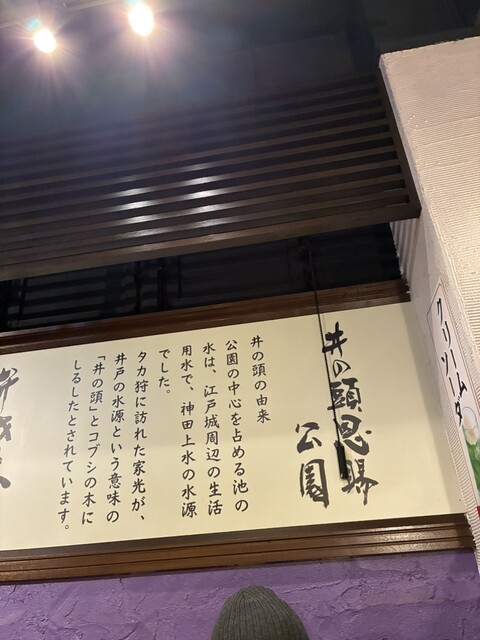 井の頭恩賜
公園
井の頭の由来
公園の中心を占める池の
水は、江戸城周辺の生活
用水で、神田上水の水源
でした。
タカ狩に訪れた家光が、
井戸の水源という意味の
「井の頭」とコブシの木に
しるしたとされています。
クリームソーダ